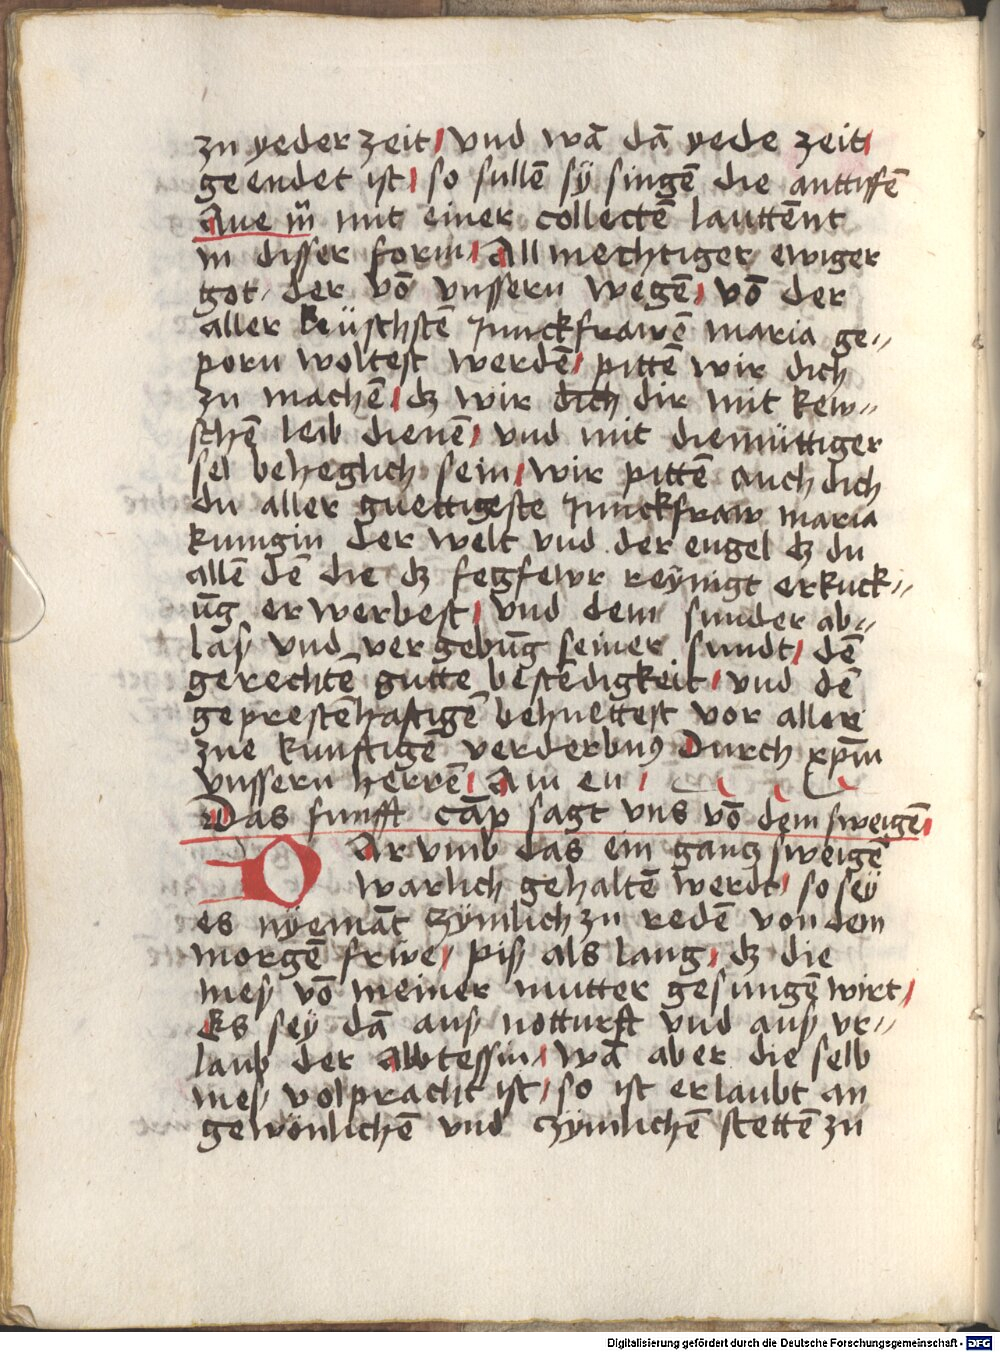 zu yeder zeit / Und wā dā yede zeit /
geendet ist / so sullē sÿ singē die anttiffē
Aue m̄ mit einer collectē lauttēnt
in disser form / Allmechtiger ewiger
got / der vō unssern wegē / vō der
aller keüschstē Junckfrawē maria ge„
porn woltest werdē / pittē wir dich
zu machē / dz wir dich dir mit kew„
schē leib dienē / und mit diemüttiger
sel beheglich sein / wir pittē auch dich
du aller guettigeste Junckfraw maria
kunigin der welt und der engel dz du
allē dē die dz fegfewr reÿnigt erkuck„
ūg erwerbest / Und dem sunder ab„
lās und vergebūg seiner sundt / dē
gerechtē gutte bestēdigkeit / und dē
geprestēhaftigē behuettest vor aller
zue kunftigē verderbnꝰ Durch xp̄m
Unssern herrē / Amen /
Das funfft cāp sagt uns vō dem sweigē /
DAr umb das ein gantz sweigē
warlich gehaltē werdt / so seÿ
es nÿemāt zÿmlich zu redē von dem
morgē frwe / pis als lang / dz die
mes vō meiner mutter gesungē wirt /
Es seÿ dā aus notturft und aus vr„
laub der abbtessin / wā aber die selb
mes volpracht ist / so ist erlaubt an
gewönlichē und zÿmlichē stettē zu
Digitalisierung gefördert durch die Deutsche Forschungsgemeinschaft - DFG